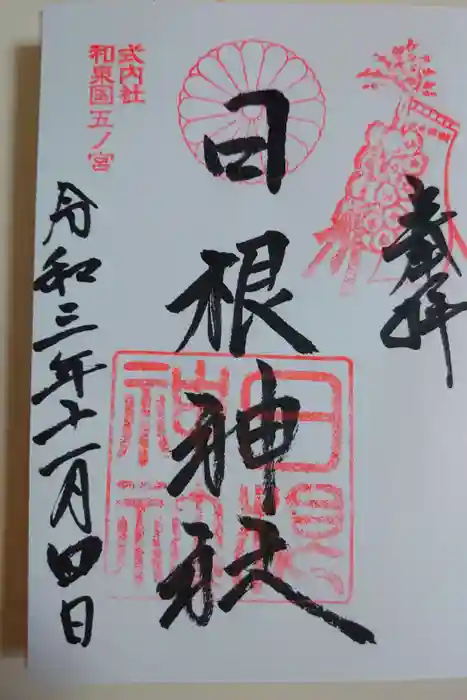 奉拝
日根神社
式内社
和泉国五ノ宮
令和三年十一月四日
日根
神社